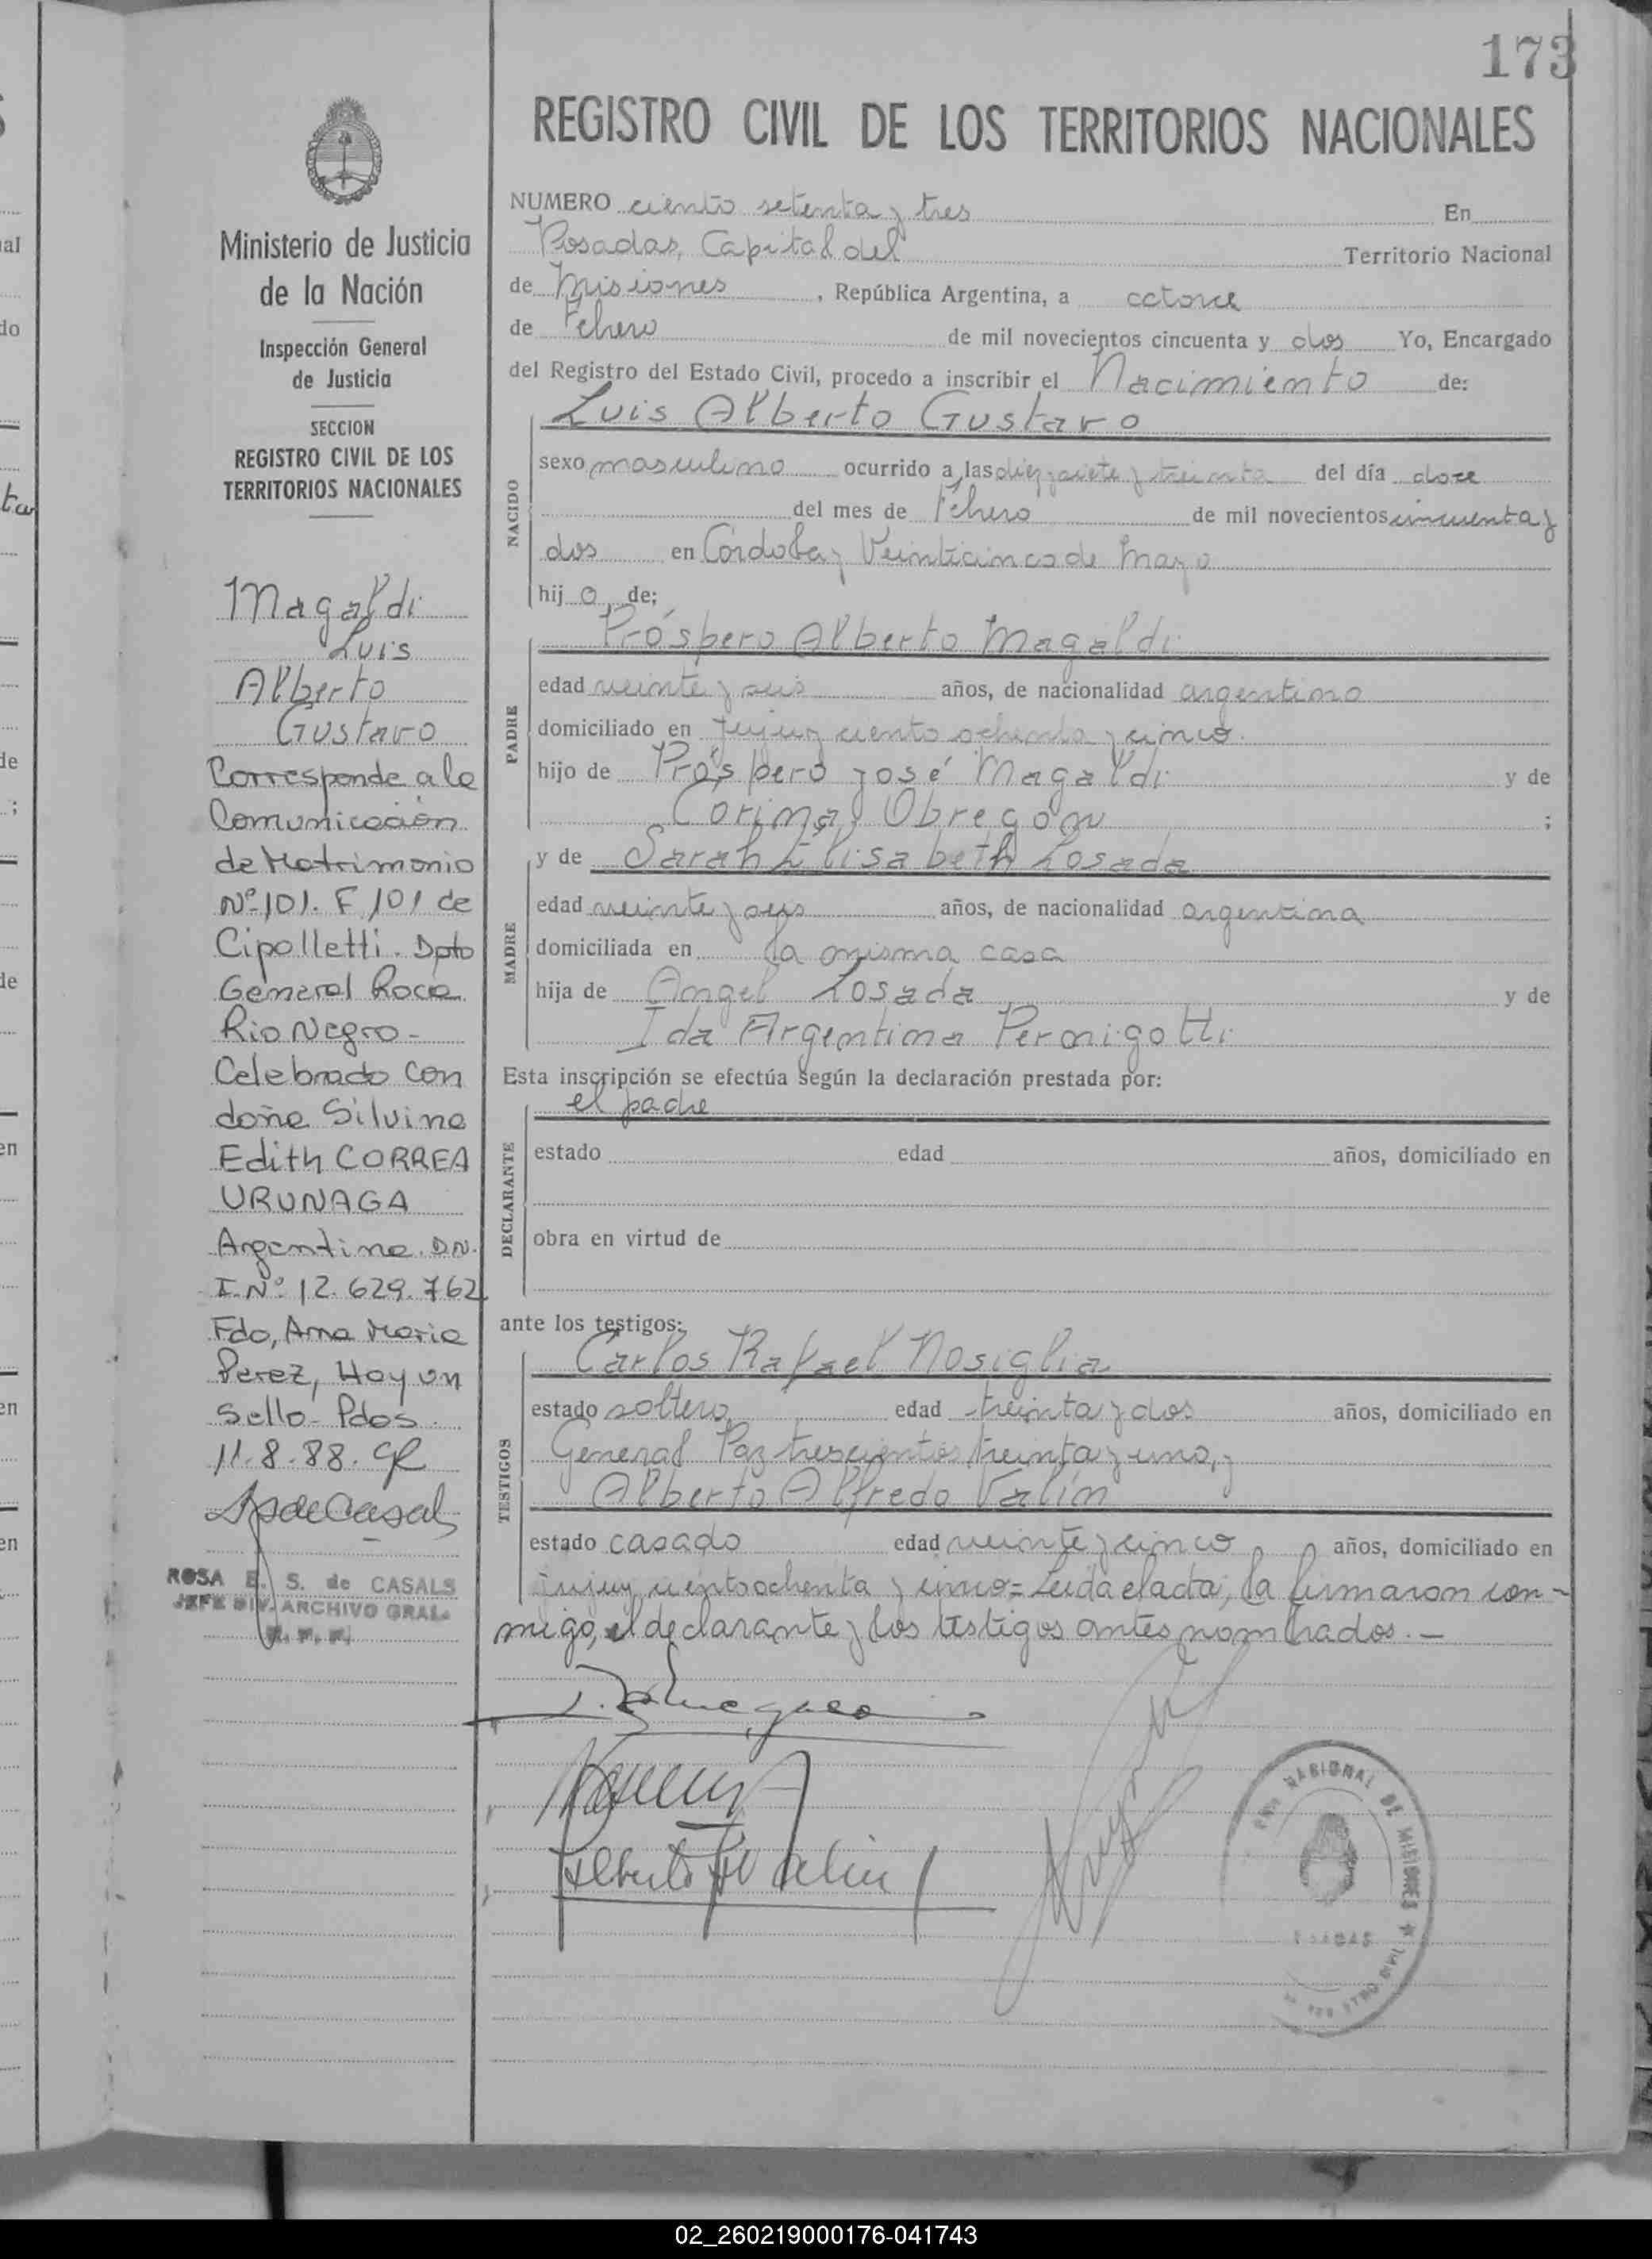 173
REGISTRO CIVIL DE LOS TERRITORIOS NACIONALES
Ministerio de Justicia
de la Nación
Inspección General
de Justicia
SECCION
REGISTRO CIVIL DE LOS
TERRITORIOS NACIONALES
Magaldi
Luis
Alberto
Gustavo
Corresponde a la
Comunicación
de Matrimonio
Nº 101. F 101 de
Cipolletti. Dpto
General Roca
Rio Negro-
Celebrado con
doña Silvina
Edith CORREA
URUNAGA
Argentina. D.N.
I. Nº 12.629.762
Fdo, Ana Maria
Perez, Hay un
Sello- Pdas.
11.8.88.
ROSA E. S. de CASALS
JEFE DIV. ARCHIVO GRAL.
NUMERO ciento setenta y tres En
Posadas, Capital del Territorio Nacional
de Misiones, República Argentina, a catorce
de Febrero de mil novecientos cincuenta y dos Yo, Encargado
del Registro del Estado Civil, procedo a inscribir el Nacimiento de:
NACIDO
Luis Alberto Gustavo
sexo masculino ocurrido a las diez siete y treinta del día doce
del mes de Febrero de mil novecientos cincuenta y
dos en Córdoba y Veinticinco de Mayo
hij o de;
PADRE
Próspero Alberto Magaldi
edad veinte y seis años, de nacionalidad argentino
domiciliado en Jujuy ciento ochenta y cinco.
hijo de Próspero José Magaldi y de
Corina Obregón ;
MADRE
y de Sarah Elisabeth Losada
edad veinte y seis años, de nacionalidad argentina
domiciliada en la misma casa
hija de Angel Losada y de
Ida Argentina Pernigotti
Esta inscripción se efectúa según la declaración prestada por:
DECLARANTE
el padre
estado edad años, domiciliado en
obra en virtud de
ante los testigos:
TESTIGOS
Carlos Rafael Nosiglia
estado soltero edad treinta y dos años, domiciliado en
General Paz trescientos treinta y uno, y
Alberto Alfredo Valín
estado casado edad veinte y cinco años, domiciliado en
jujuy ciento ochenta y cinco= Leida el acta, la firmaron con-
migo, el declarante y los testigos antes nombrados.-
NACIONAL DE MISIONES
02_260219000176-041743